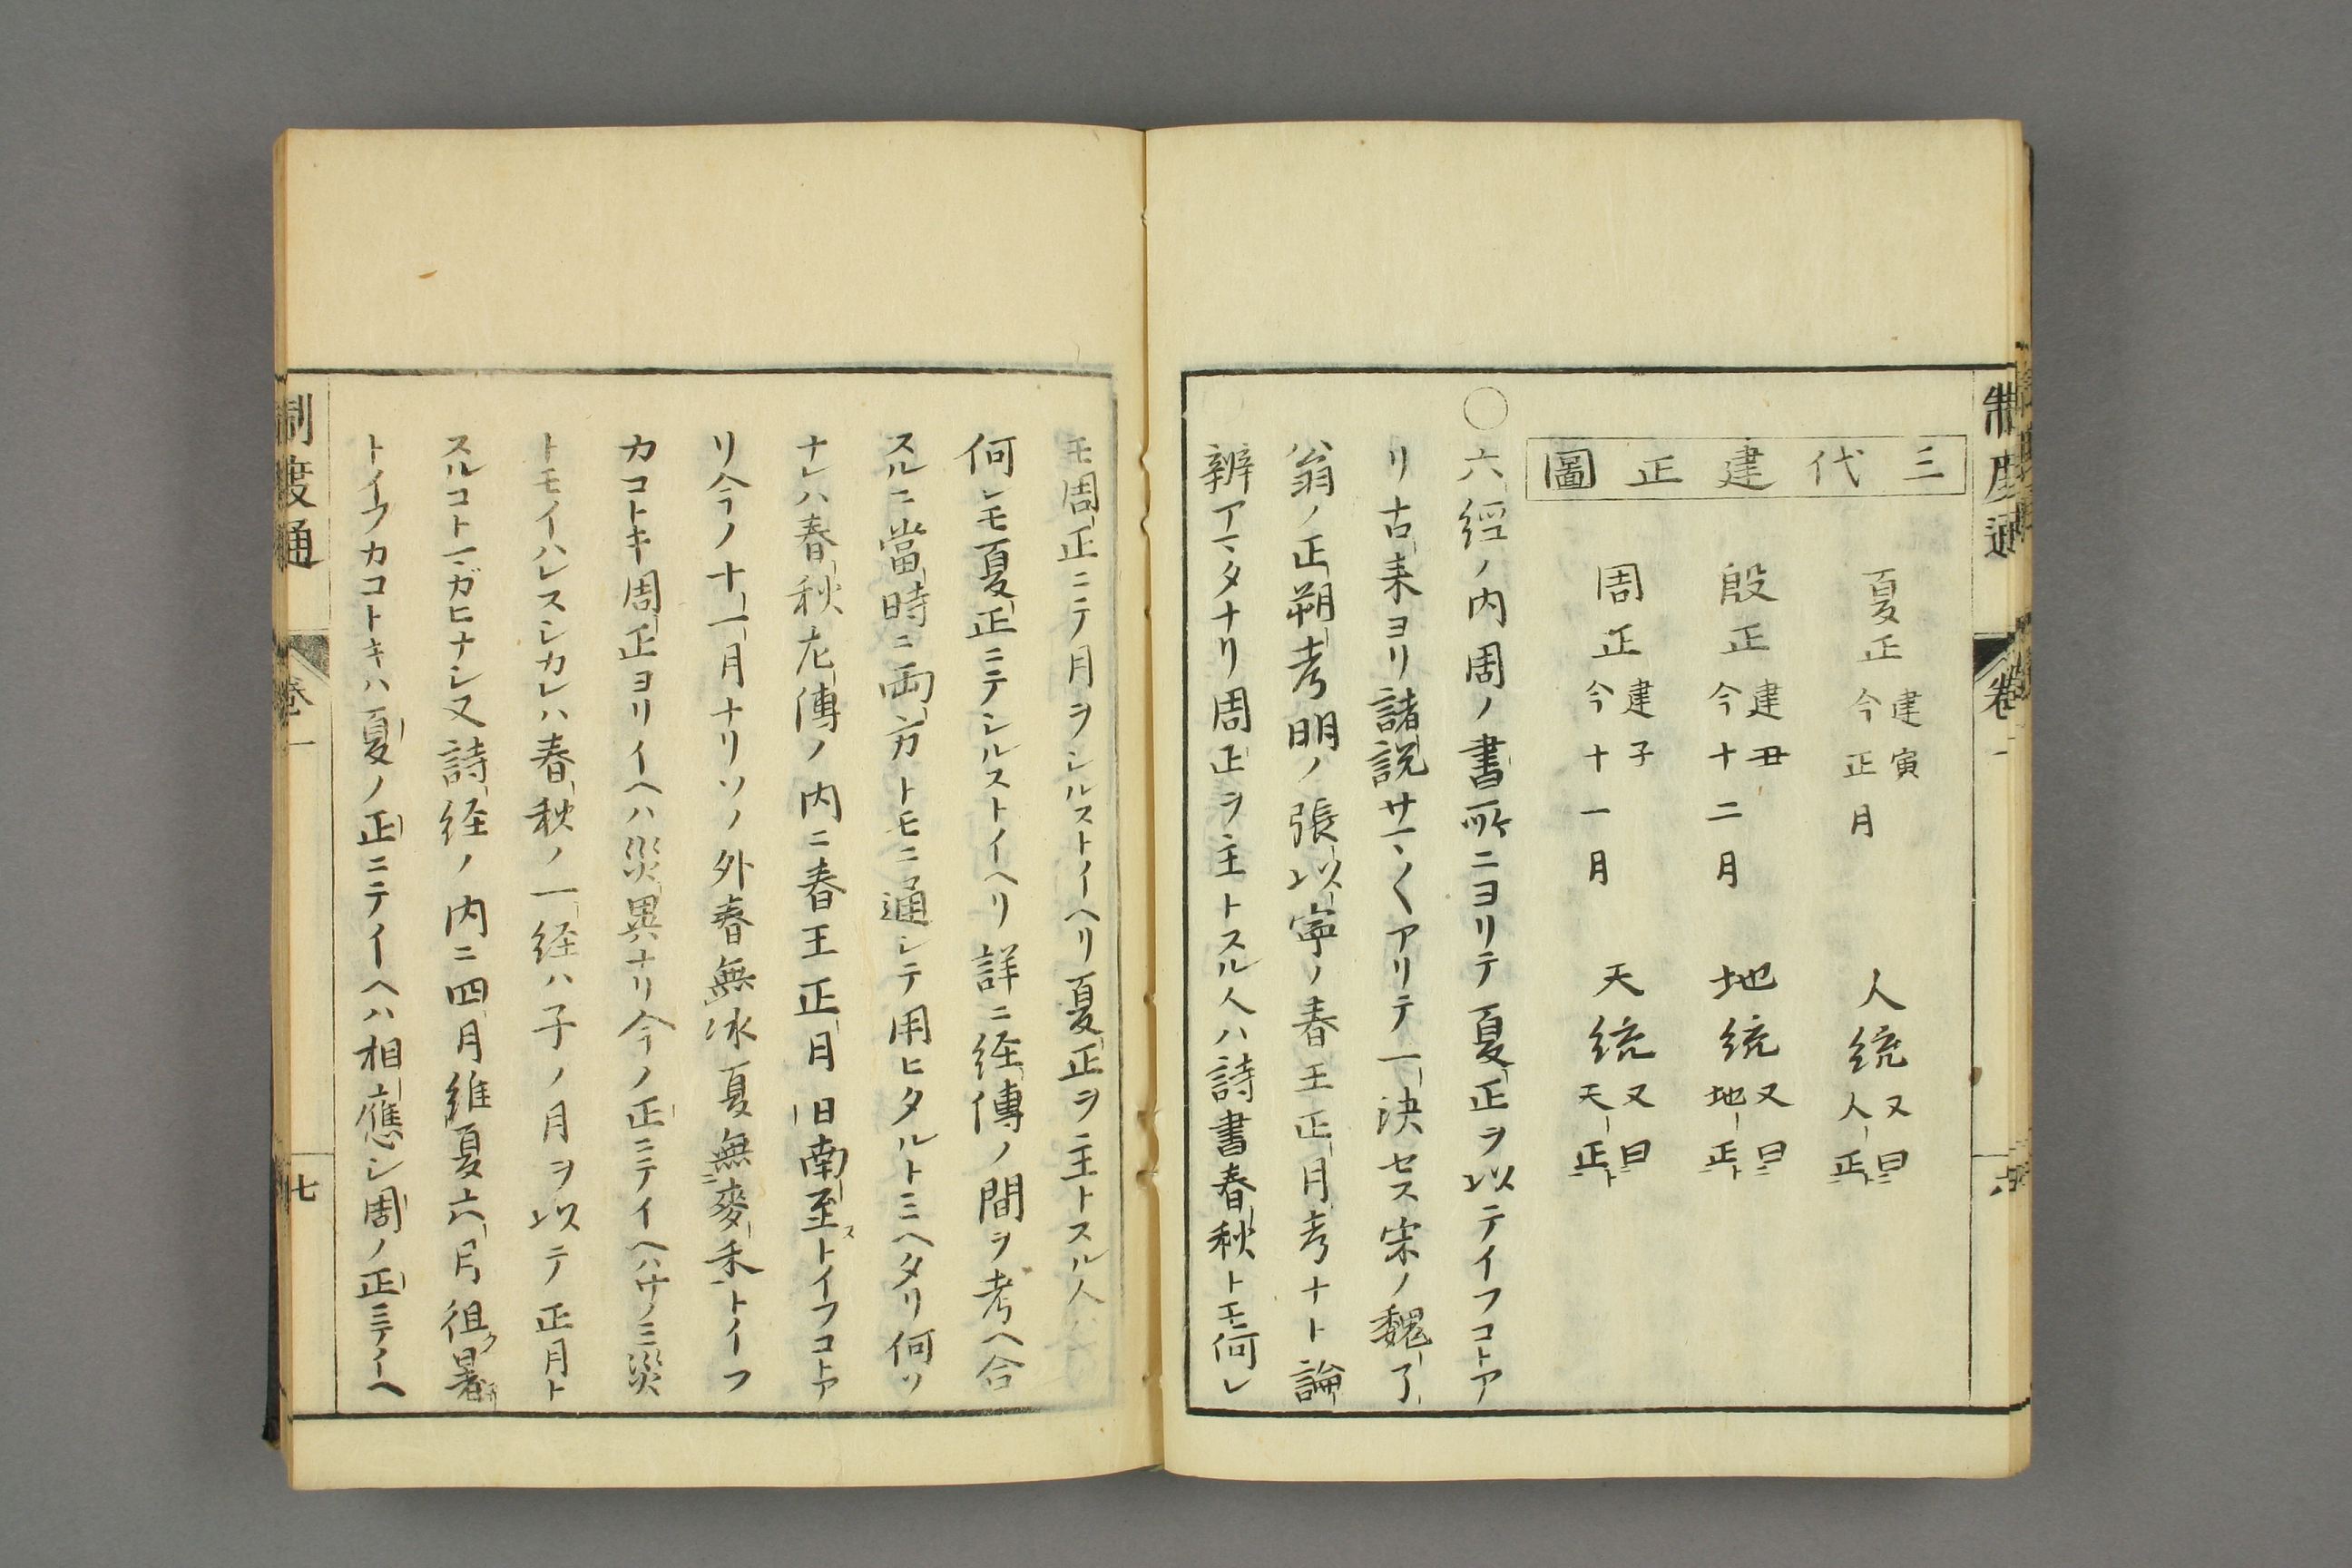 制度通 卷一 六
三代建正圖
夏正 建寅 今正月 人統 又曰 人正
殷正 建丑 今十二月 地統 又曰 地正
周正 建子 今十一月 天統 又曰 天正
○六經ノ内周ノ書所ニヨリテ夏正ヲ以テイフコトア
リ古来ヨリ諸説サマ〱アリテ一決セス宋ノ魏了
翁ノ正朔考明ノ張以寧ノ春王正月考ナト論
辨アマタナリ周正ヲ主トスル人ハ詩書春秋トモ何レ
モ周正ニテ月ヲシルストイヘリ夏正ヲ主トスル人ハ
何レモ夏正ニテシルストイヘリ詳ニ経傳ノ間ヲ考ヘ合
スルニ當時ニ両方トモニ通シテ用ヒタルトミヘタリ何ソ
ナレハ春秋左傳ノ内ニ春王正月日南至ストイフコトア
リ今ノ十一月ナリソノ外春無冰夏無麥禾トイフ
カコトキ周正ヨリイヘハ災異ナリ今ノ正ニテイヘハサノミ災
トモイハレスシカレハ春秋ノ一経ハ子ノ月ヲ以テ正月ト
スルコトマガヒナシ又詩経ノ内ニ四月維夏六月徂暑
トイフカコトキハ夏ノ正ニテイヘハ相應シ周ノ正ニテイヘ
制度通 卷一 七